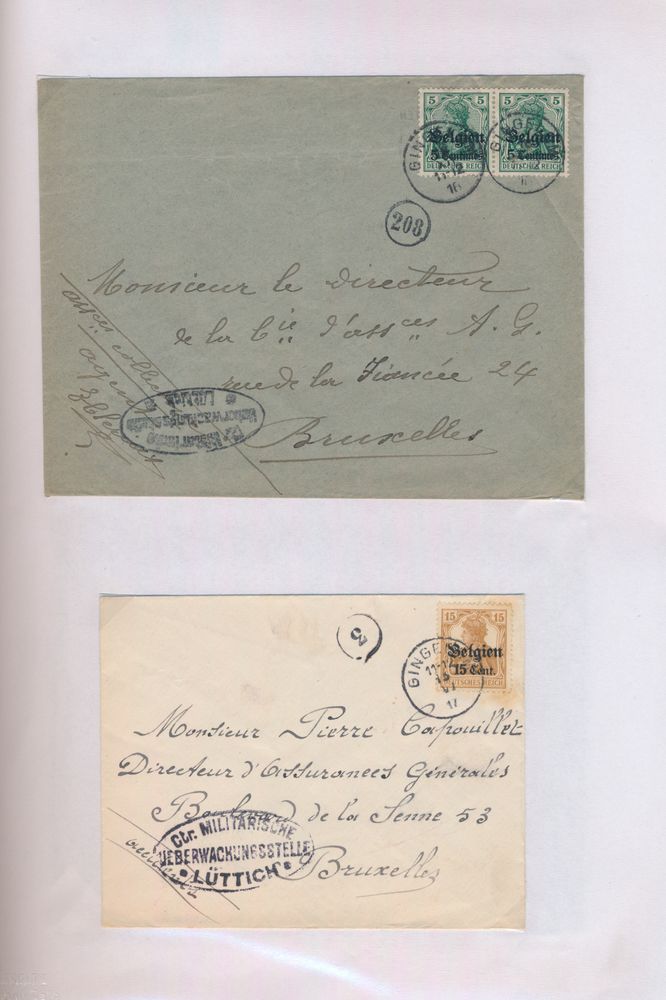 5 5 5 5
Belgien Belgien
5 Centimes 5 Centimes
DEUTSCHES REICH DEUTSCHES REICH
GINGE
11-12
16
GINGE
208
Monsieur le Directeur
de la Cie d'assces A. G.
rue de la Fiancée 24
Bruxelles
assces collec
agen
Militärische
Ueberwachungsstelle
Lüttich
3
15 15
Belgien
15 Cent.
DEUTSCHES REICH
GINGE
11-12
17
Monsieur Pierre Capouillet
Directeur d'Assurances Générales
Boulevard de la Senne 53
Bruxelles
Ctr. MILITÄRISCHE
UEBERWACHUNGSSTELLE
LÜTTICH